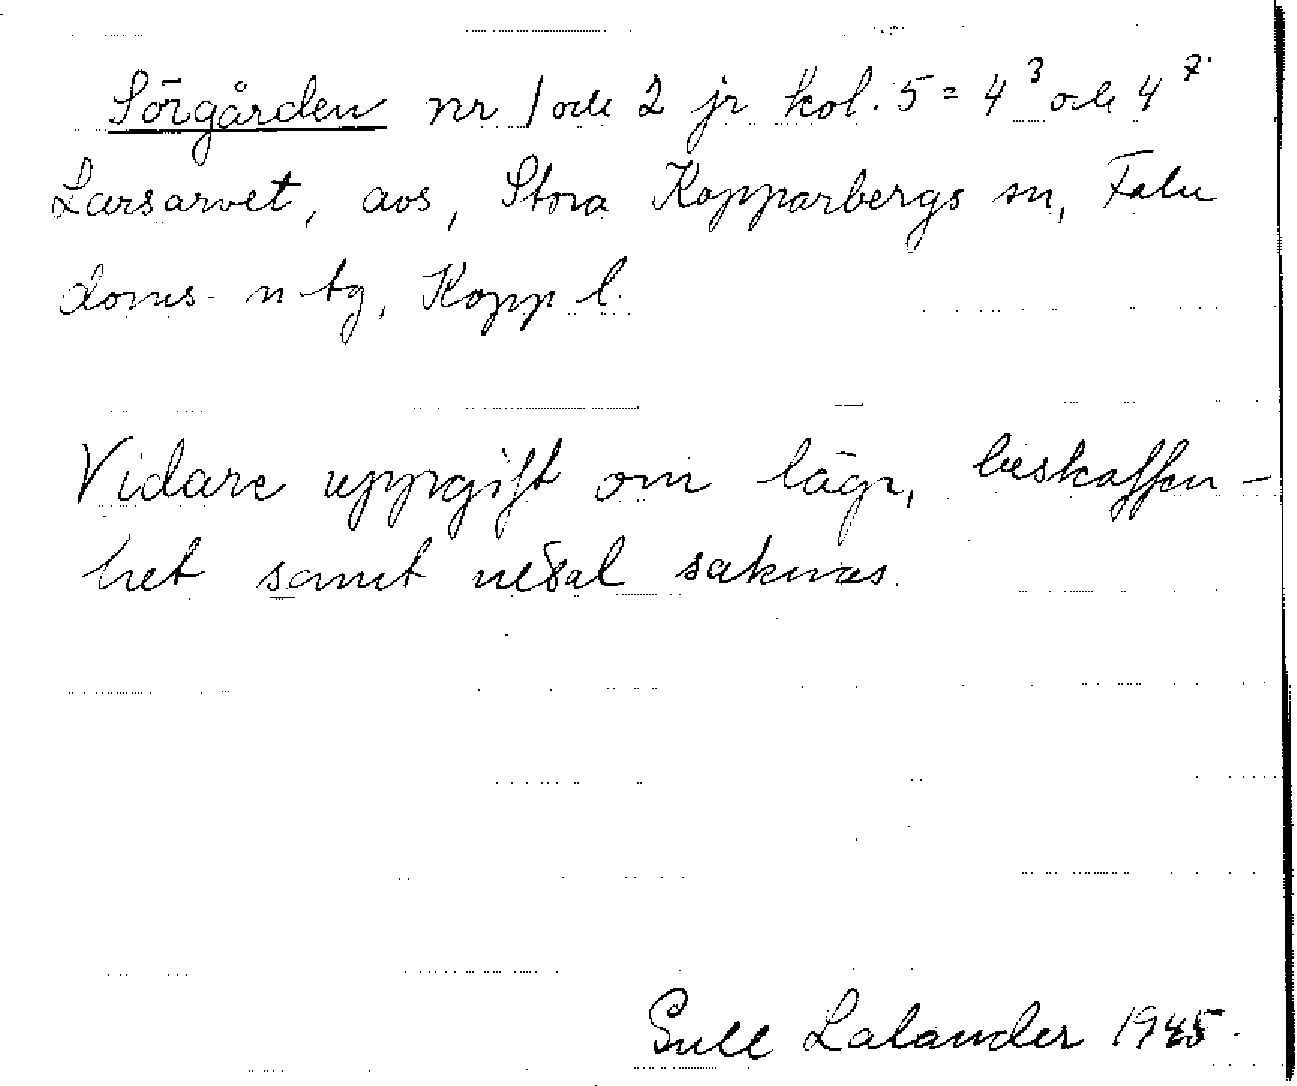 Sörgården nr 1 och 2 jr kol. 5 = 4³ och 4⁷
Larsarvet, avs, Stora Kopparbergs sn, Falu
doms- n tg, Kopp l.
Vidare uppgift om läge, beskaffen-
het samt uttal saknas.
Gull Lalander 1945.